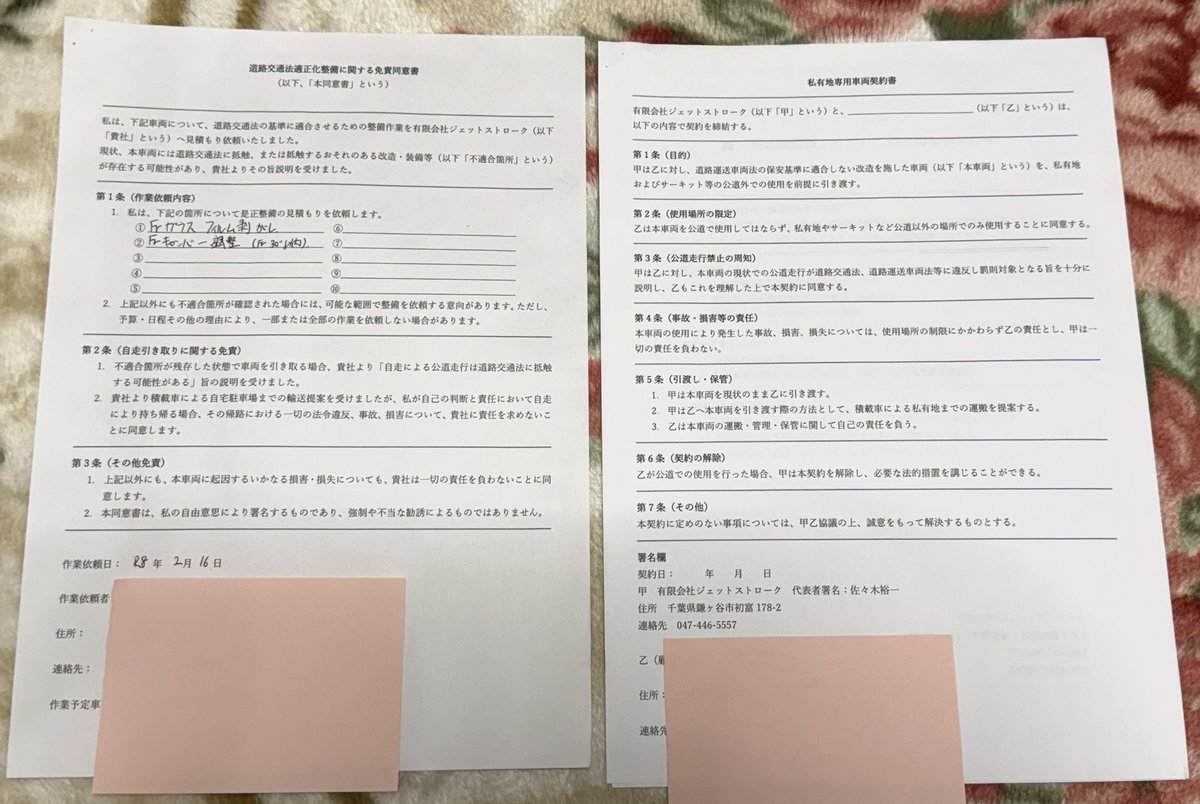 道路交通法適正化整備に関する免責同意書
(以下、「本同意書」という)
私は、下記車両について、道路交通法の基準に適合させるための整備作業を有限会社ジェットストローク(以下
「貴社」という)へ見積もり依頼いたしました。
現状、本車両には道路交通法に抵触、または抵触するおそれのある改造・装備等(以下「不適合箇所」という)
が存在する可能性があり、貴社よりその旨説明を受けました。
第1条(作業依頼内容)
1. 私は、下記の箇所について是正整備の見積もりを依頼します。
① Frガラス フィルム剥がし ⑥
② Frキャンバー調整 ⑦
③ ⑧
④ ⑨
⑤ ⑩
2. 上記以外にも不適合箇所が確認された場合には、可能な範囲で整備を依頼する意向があります。ただし、
予算・日程その他の理由により、一部または全部の作業を依頼しない場合があります。
第2条(自走引き取りに関する免責)
1. 不適合箇所が残存した状態で車両を引き取る場合、貴社より「自走による公道走行は道路交通法に抵触
する可能性がある」旨の説明を受けました。
2. 貴社より積載車による自宅駐車場までの輸送提案を受けましたが、私が自己の判断と責任において自走
により持ち帰る場合、その帰路における一切の法令違反、事故、損害について、貴社に責任を求めないこ
とに同意します。
第3条(その他免責)
1. 上記以外にも、本車両に起因するいかなる損害・損失についても、貴社は一切の責任を負わないことに同
意します。
2. 本同意書は、私の自由意思により署名するものであり、強制や不当な勧誘によるものではありません。
作業依頼日: R8 年 2月 16日
作業依頼者
住所:
連絡先:
作業予定車
私有地専用車両契約書
有限会社ジェットストローク(以下「甲」という)と、 (以下「乙」という)は、
以下の内容で契約を締結する。
第1条(目的)
甲は乙に対し、道路運送車両法の保安基準に適合しない改造を施した車両(以下「本車両」という)を、私有地
およびサーキット等の公道外での使用を前提に引き渡す。
第2条(使用場所の限定)
乙は本車両を公道で使用してはならず、私有地やサーキットなど公道以外の場所でのみ使用することに同意する。
第3条(公道走行禁止の周知)
甲は乙に対し、本車両の現状での公道走行が道路交通法、道路運送車両法等に違反し罰則対象となる旨を十分に
説明し、乙もこれを理解した上で本契約に同意する。
第4条(事故・損害等の責任)
本車両の使用により発生した事故、損害、損失については、使用場所の制限にかかわらず乙の責任とし、甲は一
切の責任を負わない。
第5条(引渡し・保管)
1. 甲は本車両を現状のまま乙に引き渡す。
2. 甲は乙へ本車両を引き渡す際の方法として、積載車による私有地までの運搬を提案する。
3. 乙は本車両の運搬・管理・保管に関して自己の責任を負う。
第6条(契約の解除)
乙が公道での使用を行った場合、甲は本契約を解除し、必要な法的措置を講じることができる。
第7条(その他)
本契約に定めのない事項については、甲乙協議の上、誠意をもって解決するものとする。
署名欄
契約日: 年 月 日
甲 有限会社ジェットストローク 代表者署名:佐々木裕一
住所 千葉県鎌ヶ谷市初富 178-2
連絡先 047-446-5557
乙(
住所:
連絡先